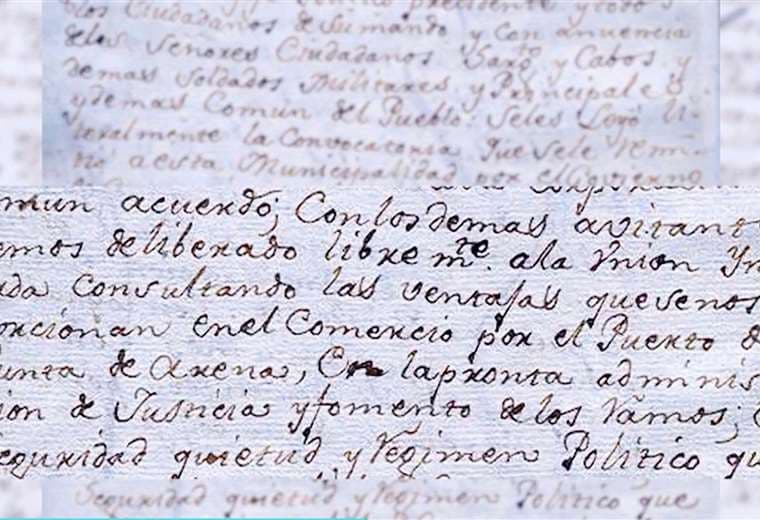 los Ciudadanos de Su mando y Con anuencia
delos Señores Ciudadanos Sargto. y Cabos y
demas Soldados Militares y Principales
y demas Comun del Pueblo Seles Leyó li-
teralmente la Convocatoria que Sele remi-
tió a esta Municipalidad por el Govierno
mun acuerdo; Con los demas avitant
emos deliberado libre mte. ala Vnion Yn
da Consultando las ventajas que senos
orcionan en el Comercio por el Puerto d
unta de Arena, En la pronta adminis
ion de Justicia y fomento de los Ramos;
eguridad quietud y Regimen Politico qu
Seguridad quietud y Regimen Politico que